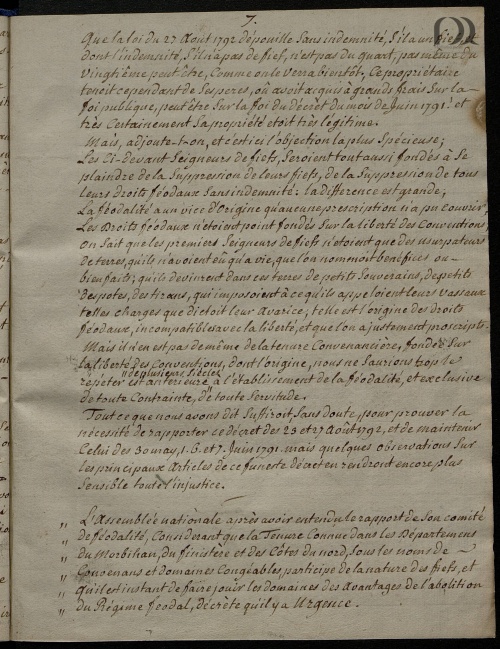 7.
Que la loi du 27 Août 1792 dépouille sans indemnité, s'il a un fief, et
dont l'indemnité, s'il n'a pas de fief, n'est pas du quart, pas même du
vingtième peut être, comme on le verra bientôt, Ce propriétaire
tenoit cependant de ses peres, ou avoit acquis à grands frais sur la
foi publique, peut être sur la foi du décret du mois de Juin 1791. et
très certainement sa propriété etoit très légitime.
Mais, adjoute-t-on, et c'est ici l'objection la plus spécieuse;
Les Ci-devant Seigneurs de fiefs, seroient tout aussi fondés à se
plaindre de la suppression de leurs fiefs, de la suppression de tous
leurs droits féodaux sans indemnité: la difference est grande;
La féodalité a un vice d'origine qu'aucune prescription n'a pu couvrir,
Les Droits féodaux n'etoient point fondés sur la liberté des Conventions,
on sait que les premiers Seigneurs de fiefs n'étoient que des usurpateurs
de terres, qu'ils n'avoient eû qu'à vie, que l'on nommoit bénéfices ou
bienfaits; qu'ils devinrent dans ces terres de petits souverains, de petits
despotes, des tirans, qui imposoient à ce qu'ils appelloient leurs vasseaux
telles charges que dictoit leur avarice; telle est l'origine des droits
féodaux, incompatibles avec la liberté, et que l'on a justement proscripts.
Mais il n'en est pas de même de la tenure Convenancière, fondée sur
la liberté des Conventions, dont l'origine, nous ne saurions trop le
repeter est antérieure de plusieurs siècles à l'établissement de la féodalité, et exclusive
de toute Contrainte, de toute servitude.
Tout ce que nous avons dit suffiroit, sans doute, pour prouver la
nécessité de rapporter ce décret des 23 et 27 Août 1792, et de maintenir
Celui des 30 may, 1. 6. et 7 Juin 1791. mais quelques observations sur
les principaux articles de ce funeste décret en rendront encore plus
sensible toute l'injustice.
" L'Assemblée nationale après avoir entendu le rapport de son comité
" de féodalité, Considérant que la Tenure Connue dans les Départemens
" du Morbihan, du finistere et des Côtes du nord, sous les noms de
" Convenans et domaines Congéables, participe de la nature des fiefs, et
" qu'il est instant de faire jouir les domaniers des avantages de l'abolition
" du Régime féodal, décrète qu'il y a Urgence.